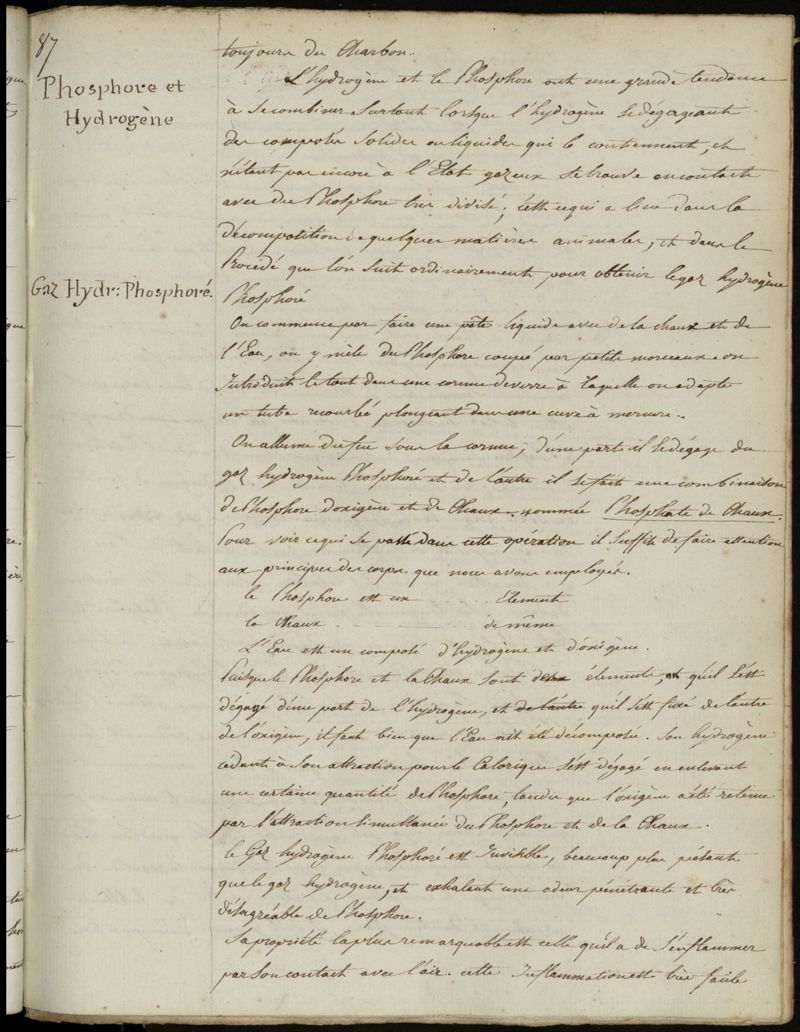 87
toujours du Charbon.
Phosphore et
Hydrogène
L'hydrogène et le Phosphore ont une grande tendence
à se combiner surtout lorsque l'hydrogène se dégageant
des composés solides ou liquides qui le contiennent, et
n'étant pas encore à l'Etat gazeux se trouve en contact
avec du Phosphore très divisé; c'est ce qui a lieu dans la
décomposition de quelques matières animales, et dans le
Procédé que l'on suit ordinairement pour obtenir le gaz hydrogène
Gaz Hydr: Phosphoré.
Phosphoré
On commence par faire une pâte liquide avec de la chaux et de
l'Eau, on y mêle du Phosphore coupé par petits morceaux on
Introduit le tout dans une cornue de verre à laquelle on adapte
un tube recourbé plongeant dans une cuve à mercure.
On allume du feu sous la cornue, d'une part il se dégage du
gaz hydrogène Phosphoré et de l'autre il se fait une combinaison
de Phosphore d'oxigène et de Chaux nommée Phosphate de Chaux.
Pour voir ce qui se passe dans cette opération il suffit de faire attention
aux principes des corps que nous avons employés.
le Phosphore est un ..... Element
la Chaux ..... de même
L'Eau est un composé d'hydrogène et d'oxigène.
Puisque le Phosphore et la Chaux sont deux élements, et qu'il s'est
dégagé d'une part de l'hydrogène, et de l'autre qu'il s'est fixé de l'autre
de l'oxigène, il faut bien que l'Eau ait été décomposée. Son hydrogène
cédant à son attraction pour le Calorique s'est dégagé en enlevant
une certaine quantité de Phosphore, tandis que l'oxigène a été retenu
par l'attraction simultanée du Phosphore et de la Chaux.
Le Gaz hydrogène Phosphoré est Invisible, beaucoup plus pésant
que le gaz hydrogène, et exhalant une odeur pénétrante et très
désagréable de Phosphore.
Sa propriété la plus remarquable est celle qu'il a de s'enflammer
par son contact avec l'air. cette Inflammation est très facile